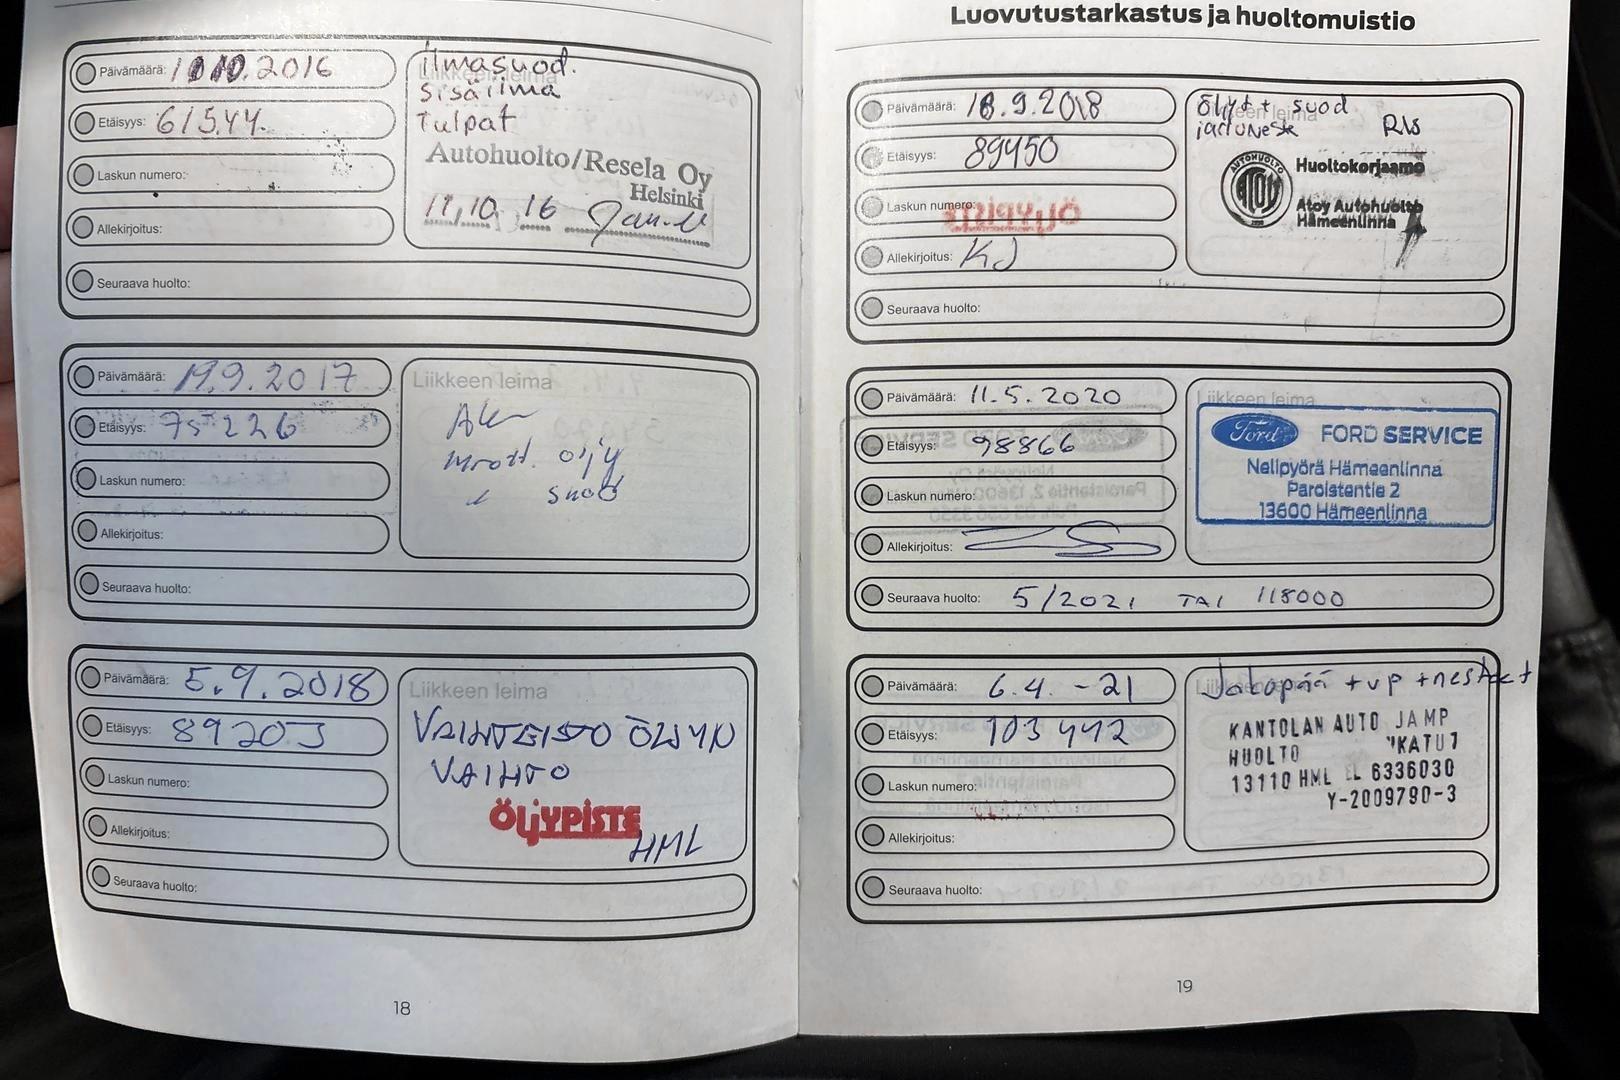 Päivämäärä: 10.10.2016
Etäisyys: 61544.
Laskun numero:
Allekirjoitus:
Seuraava huolto:
ilmasuod.
Liikkeen leima
sisäilma
Tulpat
Autohuolto/Resela Oy
Helsinki
11.10 16
Päivämäärä: 19.9.2017
Etäisyys: 75226
Laskun numero:
Allekirjoitus:
Seuraava huolto:
Liikkeen leima
öljy
suod
Päivämäärä: 5.9.2018
Etäisyys: 89203
Laskun numero:
Allekirjoitus:
Seuraava huolto:
Liikkeen leima
VAIHTEISTO ÖLJYN
VAIHTO
ÖLJYPISTE
HML
18
Luovutustarkastus ja huoltomuistio
Päivämäärä: 18.9.2018
Etäisyys: 89450
Laskun numero:
Allekirjoitus: KJ
Seuraava huolto:
Öljyt + suod
jarruneste
AUTOHUOLTO
ATOY
Huoltokorjaamo
Atoy Autohuolto
Hämeenlinna
Päivämäärä: 11.5.2020
Etäisyys: 98866
Laskun numero:
Allekirjoitus:
Seuraava huolto: 5/2021 TAI 118000
Liikkeen leima
Ford FORD SERVICE
Nelipyörä Hämeenlinna
Paroistentie 2
13600 Hämeenlinna
Päivämäärä: 6.4. -21
Etäisyys: 103442
Laskun numero:
Allekirjoitus:
Seuraava huolto:
Jakopää + vp + nesteet
KANTOLAN AUTO JA MP
HUOLTO KATU 7
13110 HML 6336030
Y-2009790-3
19